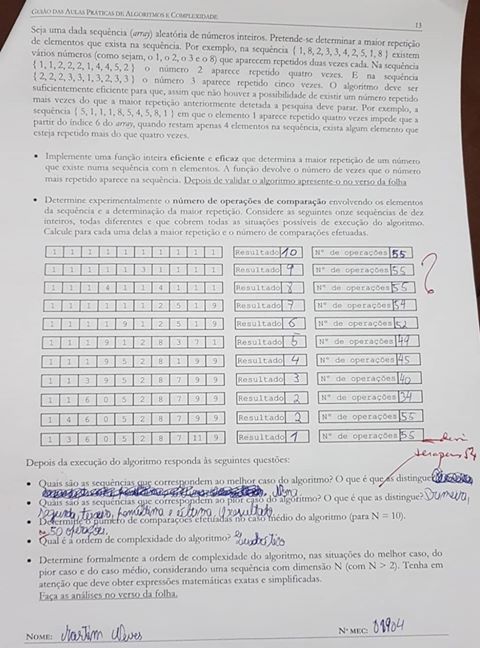 GUIÃO DAS AULAS PRÁTICAS DE ALGORITMOS E COMPLEXIDADE 13
Seja uma dada sequência (array) aleatória de números inteiros. Pretende-se determinar a maior repetição
de elementos que exista na sequência. Por exemplo, na sequência { 1, 8, 2, 3, 3, 4, 2, 5, 1, 8 } existem
vários números (como sejam, o 1, o 2, o 3 e o 8) que aparecem repetidos duas vezes cada. Na sequência
{ 1, 1, 2, 2, 2, 1, 4, 4, 5, 2 } o número 2 aparece repetido quatro vezes. E na sequência
{ 2, 2, 2, 3, 3, 1, 3, 2, 3, 3 } o número 3 aparece repetido cinco vezes. O algoritmo deve ser
suficientemente eficiente para que, assim que não houver a possibilidade de existir um número repetido
mais vezes do que a maior repetição anteriormente detetada a pesquisa deve parar. Por exemplo, a
sequência { 5, 1, 1, 1, 8, 5, 4, 5, 8, 1 } em que o elemento 1 aparece repetido quatro vezes impede que a
partir do índice 6 do array, quando restam apenas 4 elementos na sequência, exista algum elemento que
esteja repetido mais do que quatro vezes.
• Implemente uma função inteira eficiente e eficaz que determina a maior repetição de um número
que existe numa sequência com n elementos. A função devolve o número de vezes que o número
mais repetido aparece na sequência. Depois de validar o algoritmo apresente o no verso da folha
• Determine experimentalmente o número de operações de comparação envolvendo os elementos
da sequência e a determinação da maior repetição. Considere as seguintes onze sequências de dez
inteiros, todas diferentes e que cobrem todas as situações possíveis de execução do algoritmo.
Calcule para cada uma delas a maior repetição e o número de comparações efetuadas.
1 1 1 1 1 1 1 1 1 1 Resultado 10 Nº de operações 55
1 1 1 1 1 3 1 1 1 1 Resultado 9 Nº de operações 55 ?
1 1 1 4 1 1 4 1 1 1 Resultado 8 Nº de operações 55
1 1 1 1 1 1 2 5 1 9 Resultado 7 Nº de operações 54
1 1 1 1 9 1 2 5 1 9 Resultado 6 Nº de operações 52
1 1 1 9 1 2 8 3 7 1 Resultado 5 Nº de operações 49
1 1 1 9 5 2 8 1 9 9 Resultado 4 Nº de operações 45
1 1 3 9 5 2 8 7 9 9 Resultado 3 Nº de operações 40
1 1 6 0 5 2 8 7 9 9 Resultado 2 Nº de operações 34
1 4 6 0 5 2 8 7 9 9 Resultado 2 Nº de operações 55
1 3 6 0 5 2 8 7 11 9 Resultado 1 Nº de operações 55
Depois da execução do algoritmo responda às seguintes questões:
• Quais são as sequências que correspondem ao melhor caso do algoritmo? O que é que as distingue
• Quais são as sequências que correspondem ao pior caso do algoritmo? O que é que as distingue? Primeira,
segunda, terceira, penúltima e última
• Determine o número de comparações efetuadas no caso médio do algoritmo (para N = 10).
≈ 50 operações.
• Qual é a ordem de complexidade do algoritmo? Quadrático
• Determine formalmente a ordem de complexidade do algoritmo, nas situações do melhor caso, do
pior caso e do caso médio, considerando uma sequência com dimensão N (com N > 2). Tenha em
atenção que deve obter expressões matemáticas exatas e simplificadas.
Faça as análises no verso da folha.
NOME: Martim Neves Nº MEC: 88904